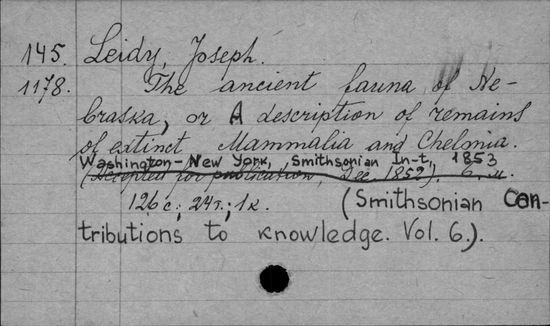 145. Leidy, Joseph.
1178. The ancient fauna of Ne-
braska, or A description of remains
of extinct Mammalia and Chelonia.
Washington-New York, Smithsonian In-t, 1853
(Accepted for publication, Dec. 1852).
126 c.; 24т.; 1к. (Smithsonian Con-
tributions to knowledge. Vol. 6.).